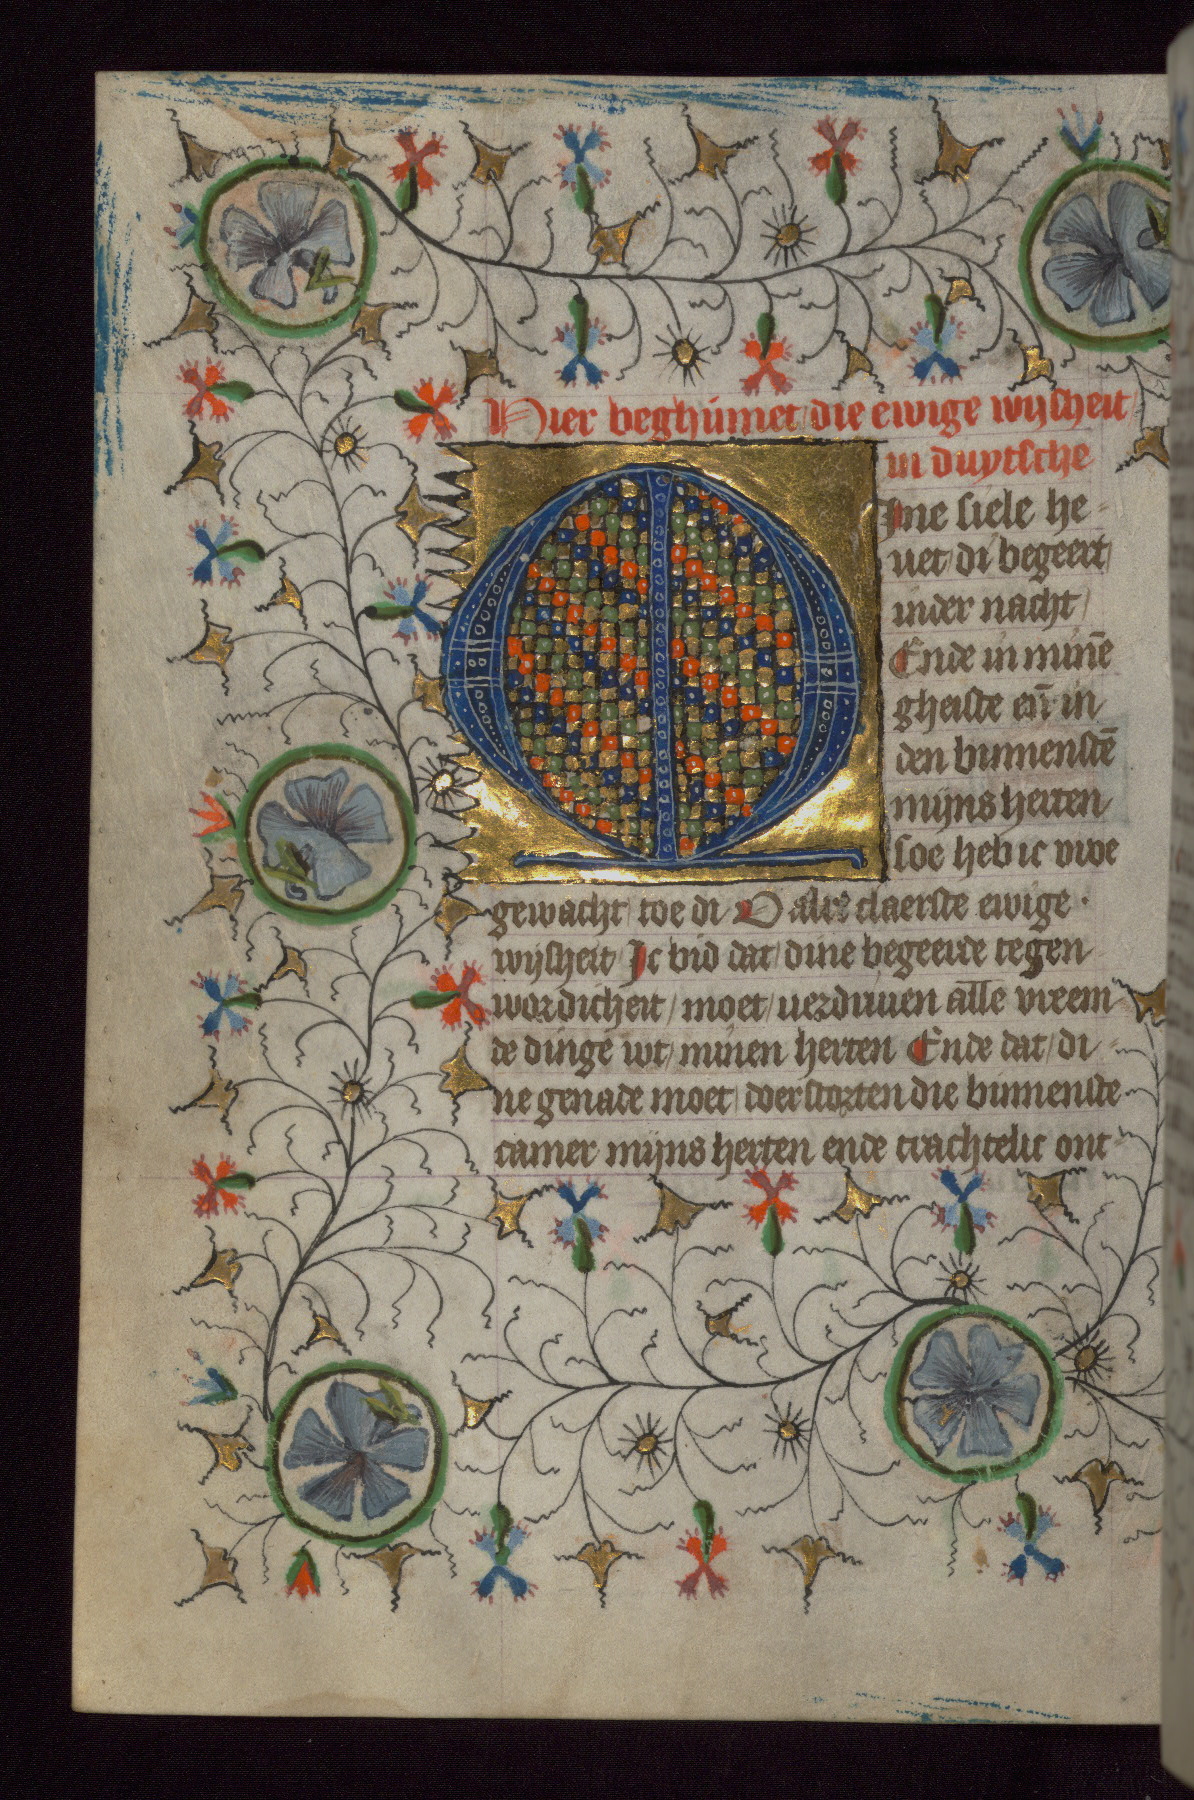 Hier beghinnet die ewige wijsheit
in duytsche
Mine siele he
uet di begeert
inder nacht
Ende in minē
gheiste en̄ in
den binnenstē
mijns herten
soe heb ic vroe
gewacht toe di O alre claerste ewige
wijsheit Ic bid dat dine begeerde tegen
wordicheit moet verdriven alle vreem
de dinge wt minen herten Ende dat di
ne genade moet doerstorten die binnenste
camer mijns herten ende crachtelic ont